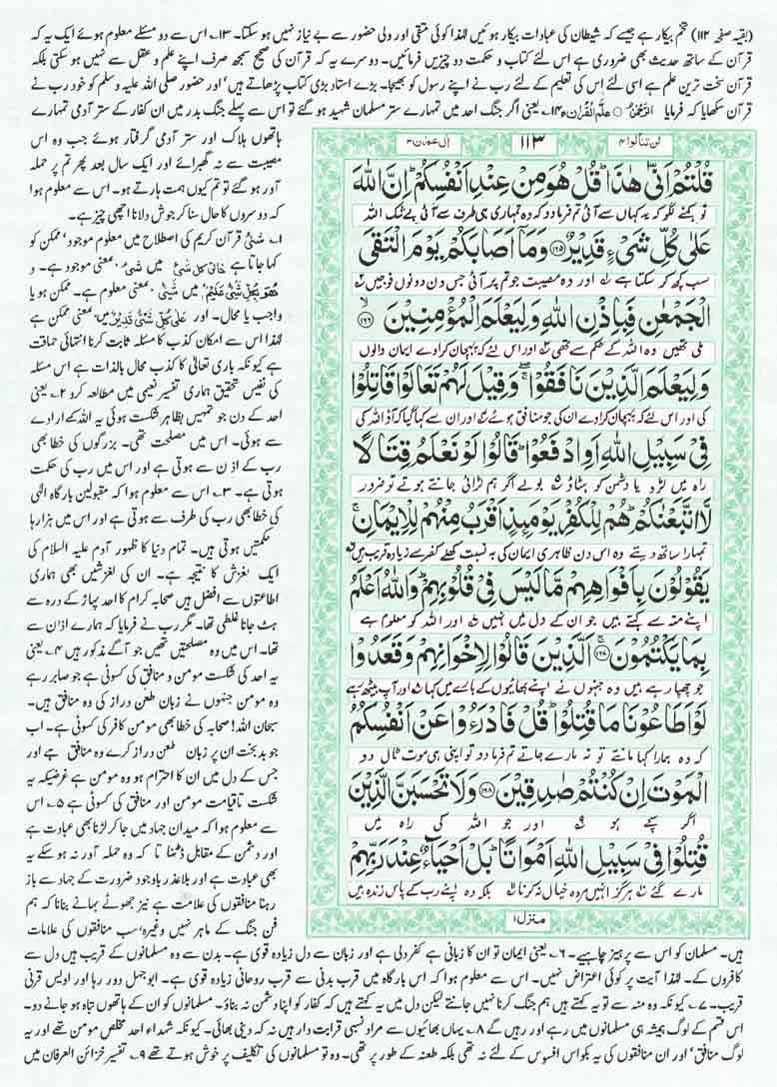 (بقیہ صفحہ ۱۱۲) تخم بیکار ہے جیسے کہ شیطان کی عبادات بیکار ہوئیں لہٰذا کوئی متقی اور ولی حضور سے بے نیاز نہیں ہو سکتا۔ ۱۳؎ اس سے دو مسئلے معلوم ہوئے ایک یہ کہ
قرآن کے ساتھ حدیث بھی ضروری ہے اس لئے کتاب و حکمت دو چیزیں فرمائیں۔ دوسرے یہ کہ قرآن کی صحیح سمجھ صرف اپنے علم و عقل سے نہیں ہو سکتی بلکہ
قرآن سخت ترین علم ہے اسی لئے اس کی تعلیم کے لئے رب نے اپنے رسول کو بھیجا۔ بڑے استاد بڑی کتاب پڑھاتے ہیں' اور حضور صلی اللہ علیہ و سلم کو خود رب نے
قرآن سکھایا کہ فرمایا اَلرَّحْمٰنُ ○ عَلَّمَ الْقُرْاٰنَ ۱۴؎ یعنی اگر جنگ احد میں تمہارے ستر مسلمان شہید ہو گئے تو اس سے پہلے جنگ بدر میں ان کفار کے ستر آدمی تمہارے
ہاتھوں ہلاک اور ستر آدمی گرفتار ہوئے جب وہ اس
مصیبت سے نہ گھبرائے اور ایک سال بعد پھر تم پر حملہ
آور ہو گئے تو تم کیوں ہمت ہارتے ہو۔ اس سے معلوم ہوا
کہ دوسروں کا حال سنا کر جوش دلانا اچھی چیز ہے۔
۱؎ شَیْءٌ قرآن کریم کی اصطلاح میں معلوم موجود' ممکن کو
کہا جاتا ہے خَالِقُ كُلِّ شَیْءٍ میں شیء' بمعنی موجود ہے۔ و
هُوَ بِكُلِّ شَیْءٍ عَلِیْمٌ میں شَیْءٌ بمعنی معلوم ہے۔ ممکن ہو یا
واجب یا محال۔ اور عَلٰی كُلِّ شَیْءٍ قَدِیْرٌ میں' بمعنی ممکن ہے
لہٰذا اس سے امکان کذب کا مسئلہ ثابت کرنا انتہائی حماقت
ہے کیونکہ باری تعالیٰ کا کذب محال بالذات ہے اس مسئلہ
کی نفیس تحقیق ہماری تفسیر نعیمی میں مطالعہ کرو ۲؎ یعنی
احد کے دن جو تمہیں بظاہر شکست ہوئی یہ اللہ کے ارادے
سے ہوئی۔ اس میں مصلحت تھی۔ بزرگوں کی خطا بھی
رب کے اذن سے ہوتی ہے اور اس میں رب کی حکمت
ہوتی ہے۔ ۳؎ اس سے معلوم ہوا کہ مقبولین بارگاہ الٰہی
کی خطا بھی رب کی طرف سے ہوتی ہے اور اس میں ہزارہا
حکمتیں ہوتی ہیں۔ تمام دنیا کا ظہور آدم علیہ السلام کی
ایک لغزش کا نتیجہ ہے۔ ان کی لغزشیں بھی ہماری
اطاعتوں سے افضل ہیں صحابہ کرام کا احد پہاڑ کے درہ سے
ہٹ جانا غلطی تھا۔ مگر رب نے فرمایا کہ ہمارے اذن سے
تھا۔ اس میں وہ مصلحتیں تھیں جو آگے مذکور ہیں ۴؎ یعنی
یہ احد کی شکست مومن و منافق کی کسوٹی ہے جو صابر رہے
وہ مومن جنہوں نے زبان طعن دراز کی وہ منافق ہیں۔
سبحان اللہ! صحابہ کی خطا بھی مومن کافر کی کسوٹی ہے۔ اب
جو بدبخت ان پر زبان طعن دراز کرے وہ منافق ہے اور
جس کے دل میں ان کا احترام ہو وہ مومن ہے غرضیکہ یہ
شکست تاقیامت مومن اور منافق کی کسوٹی ہے ۵؎ اس
سے معلوم ہوا کہ میدان جہاد میں جا کر لڑنا بھی عبادت ہے
اور دشمن کے مقابل ڈٹنا تا کہ وہ حملہ آور نہ ہو سکے یہ
بھی عبادت ہے اور بلاعذر باوجود ضرورت کے جہاد سے باز
رہنا منافقوں کی علامت ہے نیز جھوٹے بہانے بنانا کہ ہم
فن جنگ کے ماہر نہیں وغیرہ' سب منافقوں کی علامات
لن تنالوا ۴ ۱۱۳ اٰل عمرٰن ۳
قُلْتُمْ اَنّٰى هٰذَا ؕ قُلْ هُوَ مِنْ عِنْدِ اَنْفُسِكُمْ ؕ اِنَّ اللّٰهَ
تو کہنے لگو کہ یہ کہاں سے آئی تم فرما دو کہ وہ تمہاری ہی طرف سے آئی بے شک اللہ
عَلٰى كُلِّ شَیْءٍ قَدِیْرٌ ۝۱۶۵ وَ مَاۤ اَصَابَكُمْ یَوْمَ الْتَقَى
سب کچھ کر سکتا ہے اور وہ مصیبت جو تم پر آئی جس دن دونوں فوجیں
الْجَمْعٰنِ فَبِاِذْنِ اللّٰهِ وَ لِیَعْلَمَ الْمُؤْمِنِیْنَ ۝۱۶۶
ملی تھیں وہ اللہ کے حکم سے تھی اور اس لئے کہ پہچان کرا دے ایمان والوں
وَ لِیَعْلَمَ الَّذِیْنَ نَافَقُوْا ۖۚ وَ قِیْلَ لَهُمْ تَعَالَوْا قَاتِلُوْا
کی اور اس لئے کہ پہچان کرا دے ان کی جو منافق ہوئے اور ان سے کہا گیا کہ آؤ اللہ کی
فِیْ سَبِیْلِ اللّٰهِ اَوِ ادْفَعُوْا ؕ قَالُوْا لَوْ نَعْلَمُ قِتَالًا
راہ میں لڑو یا دشمن کو ہٹاؤ بولے اگر ہم لڑائی جانتے ہوتے تو ضرور
لَّا اتَّبَعْنٰكُمْ ؕ هُمْ لِلْكُفْرِ یَوْمَىِٕذٍ اَقْرَبُ مِنْهُمْ لِلْاِیْمَانِ ۚ
تمہارا ساتھ دیتے وہ اس دن ظاہری ایمان کی بہ نسبت کھلے کفر سے زیادہ قریب ہیں
یَقُوْلُوْنَ بِاَفْوَاهِهِمْ مَّا لَیْسَ فِیْ قُلُوْبِهِمْ ؕ وَ اللّٰهُ اَعْلَمُ
اپنے منہ سے کہتے ہیں جو ان کے دل میں نہیں اور اللہ کو معلوم ہے
بِمَا یَكْتُمُوْنَ ۝۱۶۷ اَلَّذِیْنَ قَالُوْا لِاِخْوَانِهِمْ وَ قَعَدُوْا
جو چھپا رہے ہیں وہ جنہوں نے اپنے بھائیوں کے بارے میں کہا اور آپ بیٹھ رہے
لَوْ اَطَاعُوْنَا مَا قُتِلُوْا ؕ قُلْ فَادْرَءُوْا عَنْ اَنْفُسِكُمُ
کہ وہ ہمارا کہا مانتے تو نہ مارے جاتے تم فرما دو تو اپنی ہی موت ٹال دو
الْمَوْتَ اِنْ كُنْتُمْ صٰدِقِیْنَ ۝۱۶۸ وَ لَا تَحْسَبَنَّ الَّذِیْنَ
اگر سچے ہو اور جو اللہ کی راہ میں
قُتِلُوْا فِیْ سَبِیْلِ اللّٰهِ اَمْوَاتًا ؕ بَلْ اَحْیَآءٌ عِنْدَ رَبِّهِمْ
مارے گئے ہرگز انہیں مردہ خیال نہ کرنا بلکہ وہ اپنے رب کے پاس زندہ ہیں
منزل ۱
ہیں۔ مسلمان کو اس سے پرہیز چاہیے۔ ۶؎ یعنی ایمان تو ان کا زبانی ہے کفر دلی ہے اور زبان سے دل زیادہ قوی ہے۔ بدن سے وہ مسلمانوں کے قریب ہیں دل سے
کافروں کے۔ لہٰذا آیت پر کوئی اعتراض نہیں۔ اس سے معلوم ہوا کہ اس بارگاہ میں قرب بدنی سے قرب روحانی زیادہ قوی ہے۔ ابوجہل دور رہا اور اویس قرنی
قریب۔ ۷؎ کیونکہ وہ منہ سے تو یہ کہتے ہیں ہم جنگ کرنا نہیں جانتے لیکن دل میں یہ کہتے ہیں کہ کفار کو اپنا دشمن نہ بناؤ۔ مسلمانوں کو ان کے ہاتھوں تباہ ہو جانے دو۔
اس قسم کے لوگ ہمیشہ ہی مسلمانوں میں رہے اور رہیں گے ۸؎ یہاں بھائیوں سے مراد نسبی قرابت دار ہیں نہ کہ دینی بھائی۔ کیونکہ شہداء احد مخلص مومن تھے اور یہ
لوگ منافق' اور ان منافقوں کی یہ بکواس افسوس کے لئے نہ تھی بلکہ طعنہ کے طور پر تھی۔ وہ تو مسلمانوں کی تکلیف پر خوش ہوتے تھے ۹؎ تفسیر خزائن العرفان میں